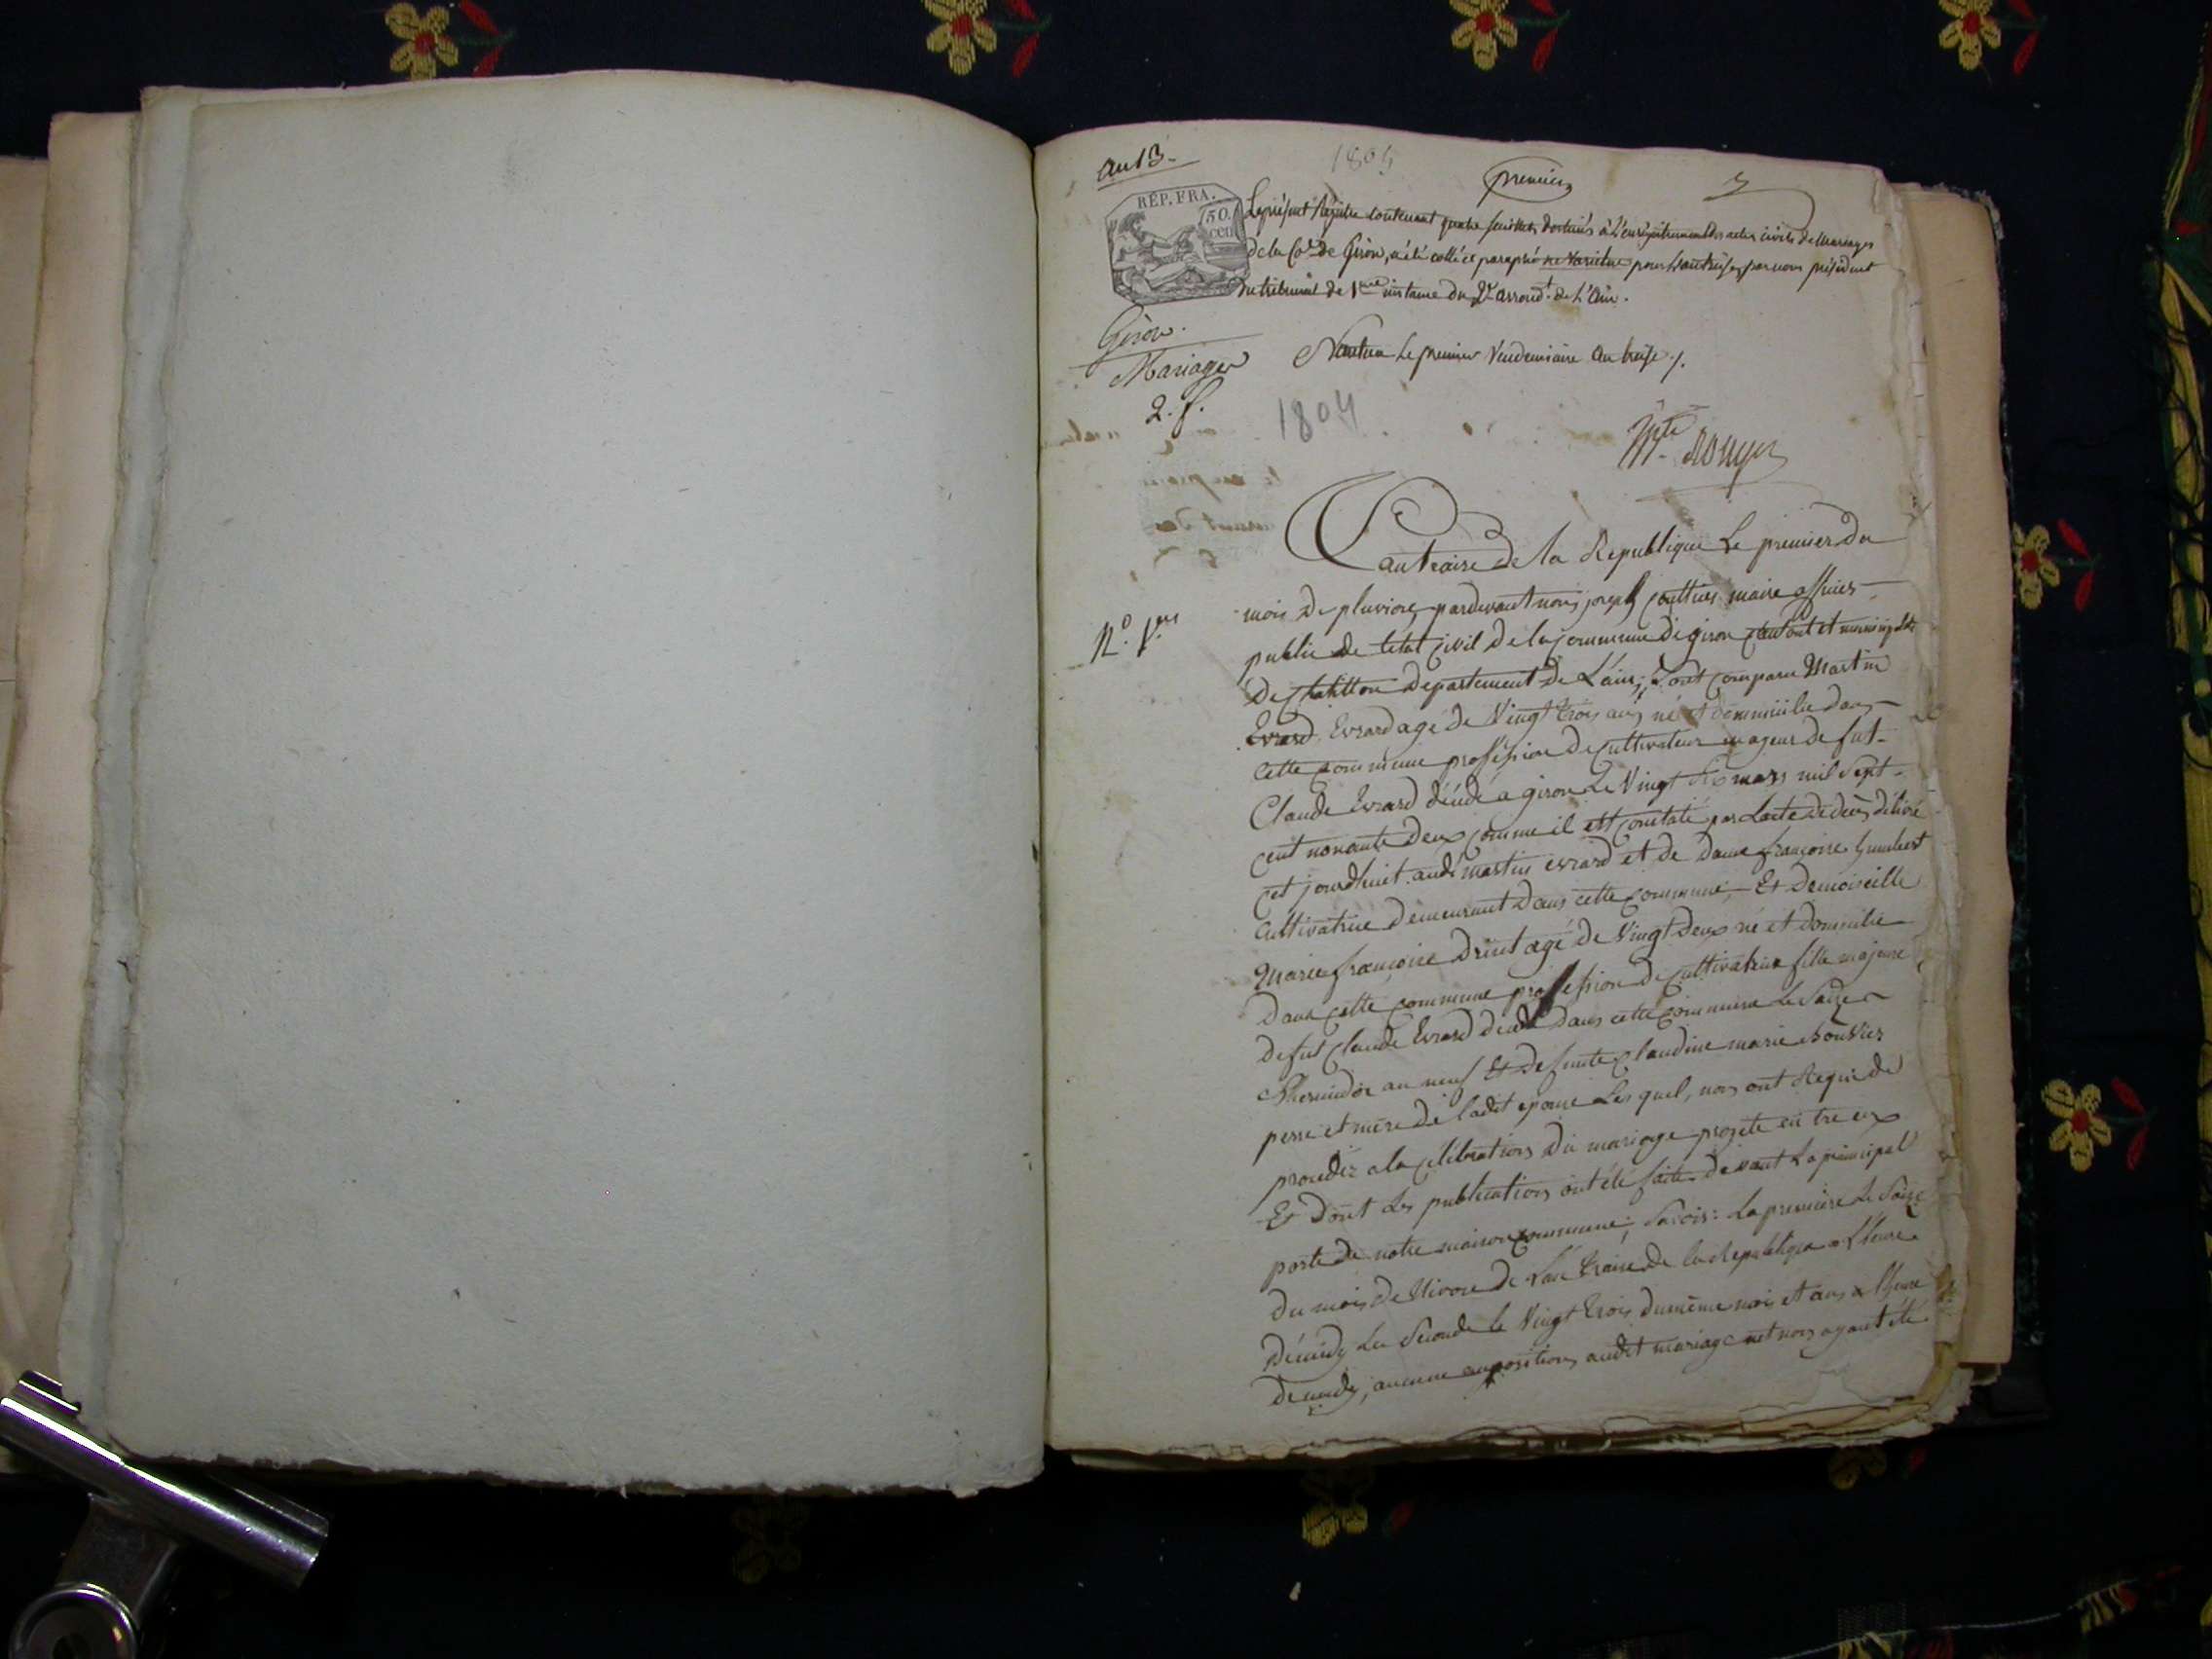 an 13.
1805
premier
RÉP. FRA.
50.
cen
Le présent Registre contenant quatre feuillets destinés à l'enregistrement des actes civils de Mariages
de la Cne de Giron, a été collé et paraphé ne varietur pour l'an treize, par nous président
du tribunal de 1ere instance du 2e arrond.t de L'Ain.
Giron.
Mariages
2. f.
Nantua Le premier Vendemiaire an treize ./.
1804
Rouyer
N.o 1.er
L'an traire de la Republique Le premier du
mois de pluviose, pardevant nous joseph maire officier
public de létat civil de la commune de giron Canton et municipalité
de Chatillon departement de L'ain; Sont comparu Martin
Evrard Evrard agé de Vingt Trois ans né et domicilié dans
cette commune profession de cultivateur mageur de fut
Claude Evrard décédé a giron Le Vingt Six mars mil Sept
cent nonante deux comme il est constaté par Lacte de décès délivré
cet jourdhuit audi martin evrard et de dame françoise humbert
cultivatrice demeurant dans cette commune, Et Demoiseille
Marie françoise agé de Vingt deux né et domicilie
dans cette commune profession de cultivateur fille majeure
de fut Claude Evrard décédé dans cette commune Le Saize
Thermidor an neuf Et defunte Claudine marie Bouvier
perre et mère de ladit epouse Les quel, nous ont Requi de
procedér a la célébrations du mariage projeté en tre eux
Et Dont Les publications ont été faite devant La principal
porte de notre maison commune; Savoir: La première Le Saize
du mois de Nivose de L'an Traire de la Republique a Lheure
de midy La Seconde le Vingt Trois du même mois et ans a lheure
de midy, aucune opposition, audit mariage net nous ayant été